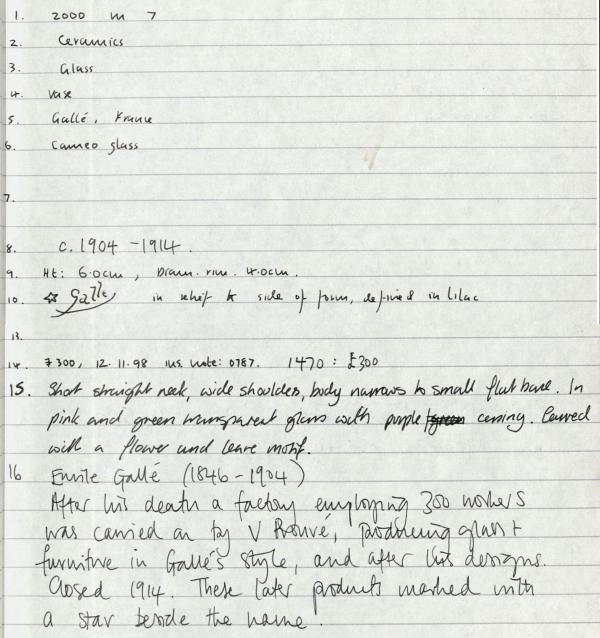 1. 2000 m 7
2. Ceramics
3. Glass
4. Vase
5. Gallé, France
6. Cameo glass
7.
8. c. 1904 - 1914.
9. Ht: 6.0cm, Diam. rim. 4.0cm.
10. ☆ Gallé in relief to side of form, defined in lilac
13.
14. £300, 12.11.98 ins. note: 0787. 1470 : £300
15. Short straight neck, wide shoulders, body narrows to small flat base. In
pink and green transparent glass with purple casing. Carved
with a flower and leave motif.
16 Emile Gallé (1846-1904)
After his death a factory employing 300 workers
was carried on by V Prouvé, producing glass +
furniture in Gallé's style, and after his designs.
Closed 1914. These later products marked with
a star beside the name.